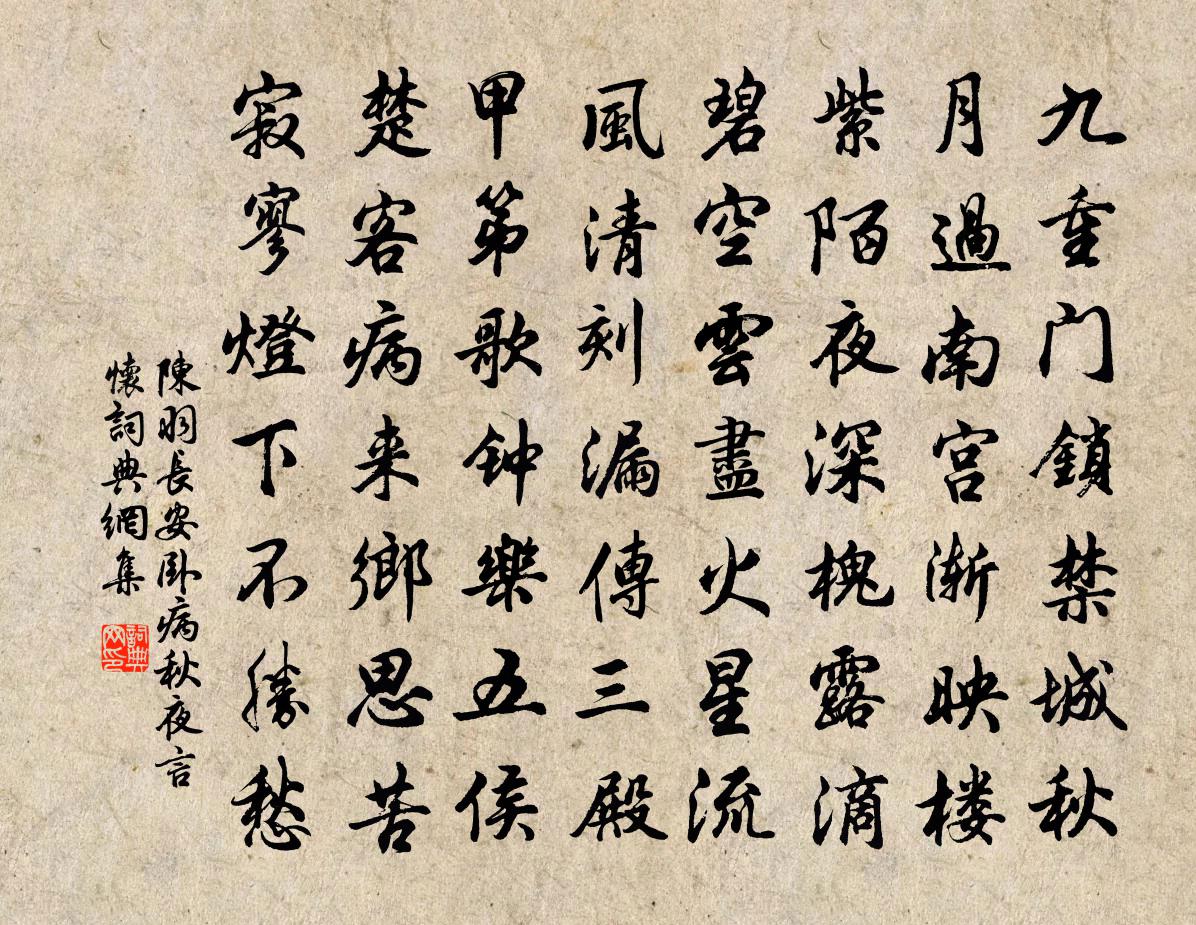 九重门鎖禁城秋
月過南宫渐映楼
紫陌夜深槐露滴
碧空雲盡火星流
風清刻漏傳三殿
甲第歌钟樂五侯
楚客病来鄉思苦
寂寥燈下不勝愁
陳羽長安卧病秋夜言
懷詞典網集
詞典
网印